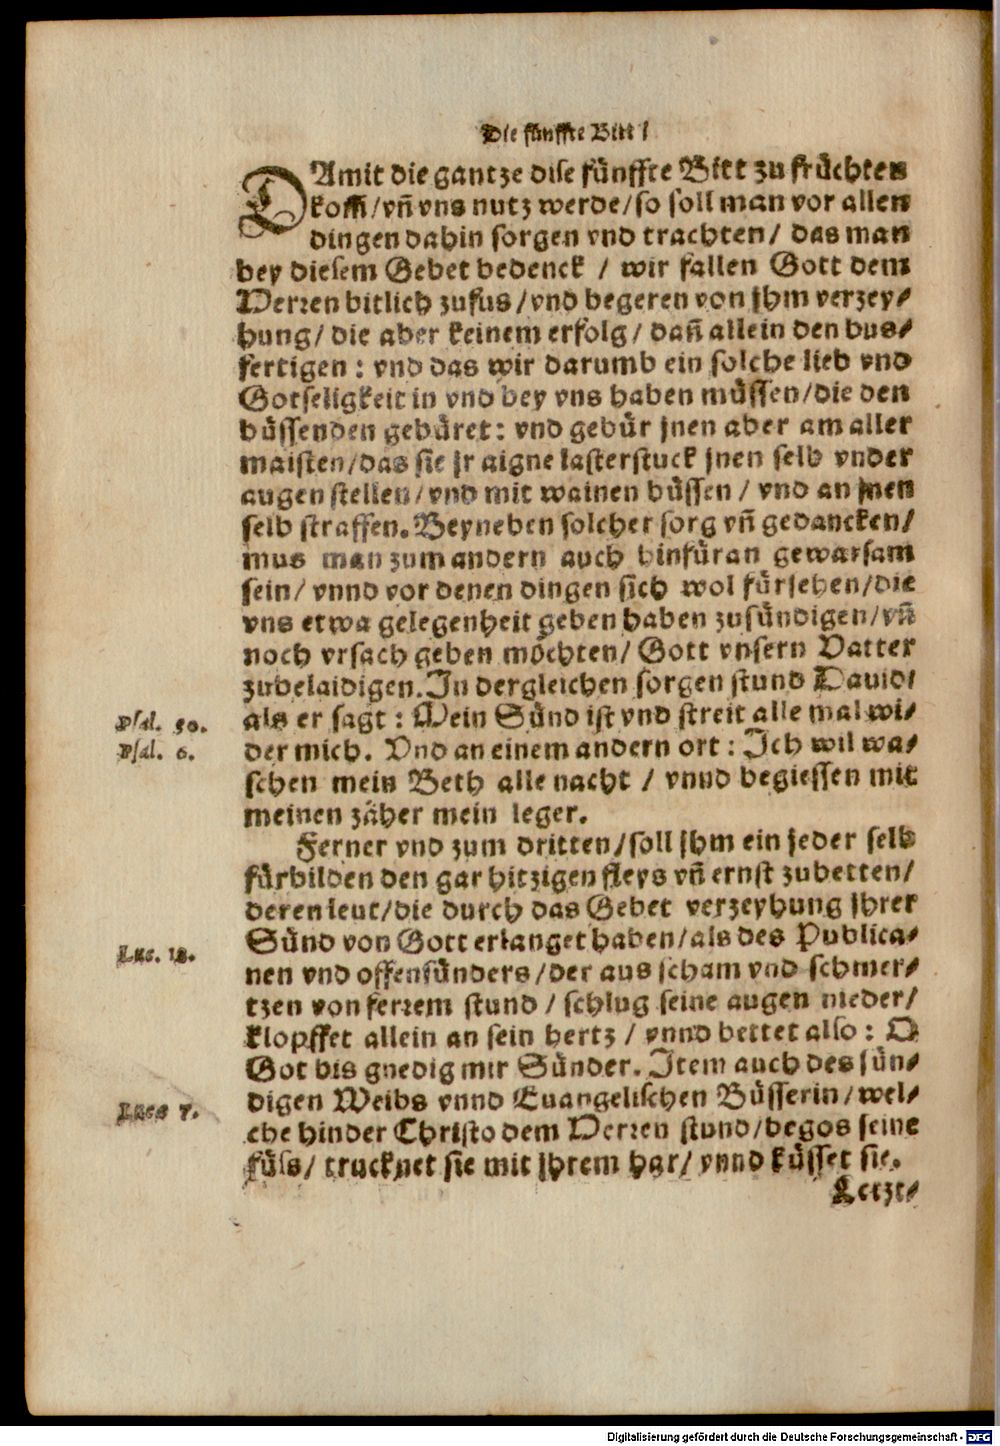 Die fünffte Bitt /
DAmit die gantze dise fünffte Bitt zu früchten
kom̃/vñ vns nutz werde/so soll man vor allen
dingen dahin sorgen vnd trachten/ das man
bey diesem Gebet bedenck / wir fallen Gott dem
Herren bitlich zufus/vnd begeren von jhm verzey⸗
hung/ die aber keinem erfolg/ dañ allein den bus⸗
fertigen : vnd das wir darumb ein solche lieb vnd
Gotseligkeit in vnd bey vns haben müssen/die den
büssenden gebüret: vnd gebür jnen aber am aller
maisten/das sie jr aigne lasterstuck jnen selb vnder
augen stellen/vnd mit wainen büssen / vnd an jnen
selb straffen. Beyneben solcher sorg vñ gedancken/
mus man zum andern auch hinfüran gewarsam
sein/ vnnd vor denen dingen sich wol fürsehen/die
vns etwa gelegenheit geben haben zusündigen/vñ
noch vrsach geben möchten/ Gott vnsern Vatter
zubelaidigen. In dergleichen sorgen stund Dauid/
Psal. 50.
als er sagt : Mein Sünd ist vnd streit alle mal wi⸗
Psal. 6.
der mich. Vnd an einem andern ort : Ich wil wa⸗
schen mein Beth alle nacht / vnnd begiessen mit
meinen zäher mein leger.
Ferner vnd zum dritten/soll jhm ein jeder selb
fürbilden den gar hitzigen fleys vñ ernst zubetten/
deren leut/die durch das Gebet verzeyhung jhrer
Luc. 18.
Sünd von Gott erlanget haben/als des Publica⸗
nen vnd offensünders/der aus scham vnd schmer⸗
tzen von ferrem stund / schlug seine augen nieder/
klopffet allein an sein hertz / vnnd bettet also : O
Got bis gnedig mir Sünder. Item auch des sün⸗
Lucæ 7.
digen Weibs vnnd Euangelischen Büsserin/wel⸗
che hinder Christo dem Herren stund/begos seine
füss/ trucknet sie mit jhrem har/ vnnd küsset sie.
Letzt⸗
Digitalisierung gefördert durch die Deutsche Forschungsgemeinschaft - DFG